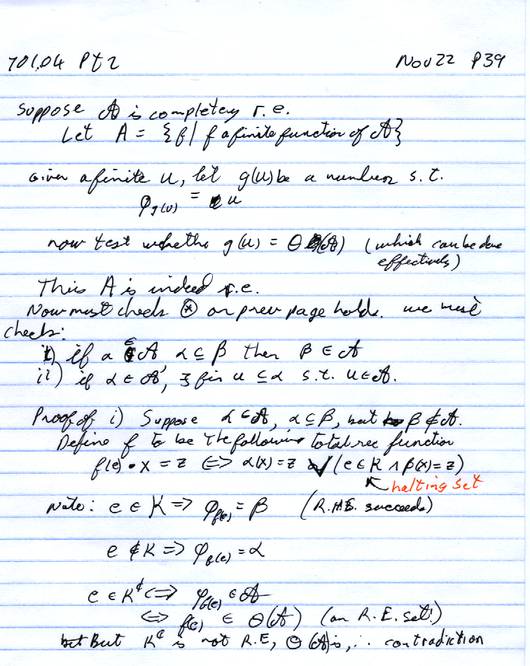 701.04 Pt 2 Nov 22 P39
Suppose 𝒜 is completely r.e.
Let A = {f | f a finite function of 𝒜}
Given a finite u, let g(u) be a number s.t.
φ_g(u) = u
now test whether g(u) = Θ(𝒜) (which can be done
effectively)
This A is indeed r.e.
Now must check ⊛ on prev page holds. we must
check:
i) if α ∈ 𝒜 α ⊆ β then β ∈ 𝒜
ii) if α ∈ 𝒜, ∃ fin u ⊆ α s.t. u ∈ 𝒜.
Proof of i) Suppose α ∈ 𝒜, α ⊆ β, but β ∉ 𝒜.
Define f to be the following total rec function
f(e) • x = z ⟺ α(x) = z ∨ (e ∈ K ∧ β(x) = z)
↖ halting set
Note: e ∈ K ⟹ φ_f(e) = β (R.H.S. succeeds)
e ∉ K ⟹ φ_f(e) = α
e ∈ K^¢ ⟺ φ_f(e) ∈ 𝒜
⟺ f(e) ∈ Θ(𝒜) (an R.E. set!)
but But K^¢ is not R.E, Θ(𝒜) is, ∴ contradiction